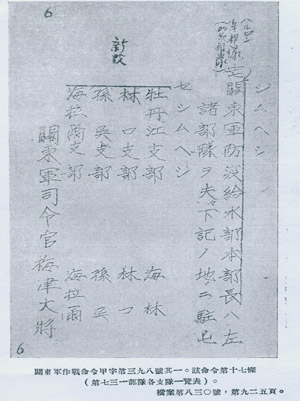 6
シムヘシ
關東軍防疫給水部本部長ハ左
諸部隊ヲ夫々下記ノ地ニ駐屯
セシムヘシ
新設
牡丹江支部　海林
林口支部　林口
孫吳支部　孫吳
海拉爾支部　海拉爾
關東軍司令官梅津大將
6
關東軍作戰命令甲字第三九八號其一。該命令第十七條
（第七三一部隊各支隊一覽表）。
檔案第八三〇號，第九二五頁。